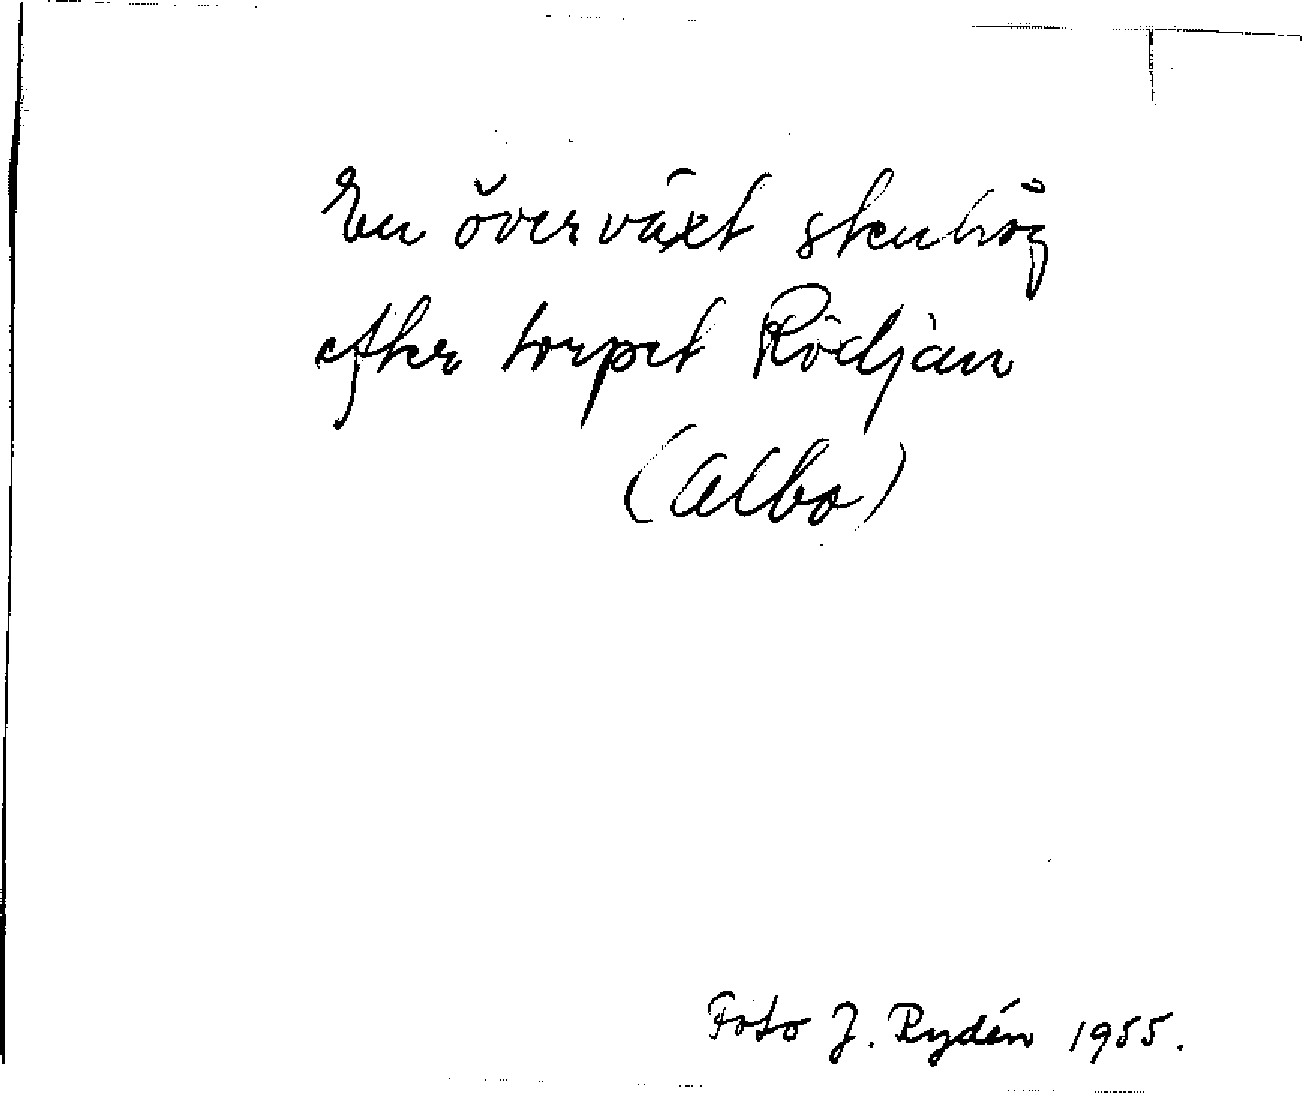 En överväxt stenhög
efter torpet Rödjan
(Albo)
Foto J. Rydén 1955.